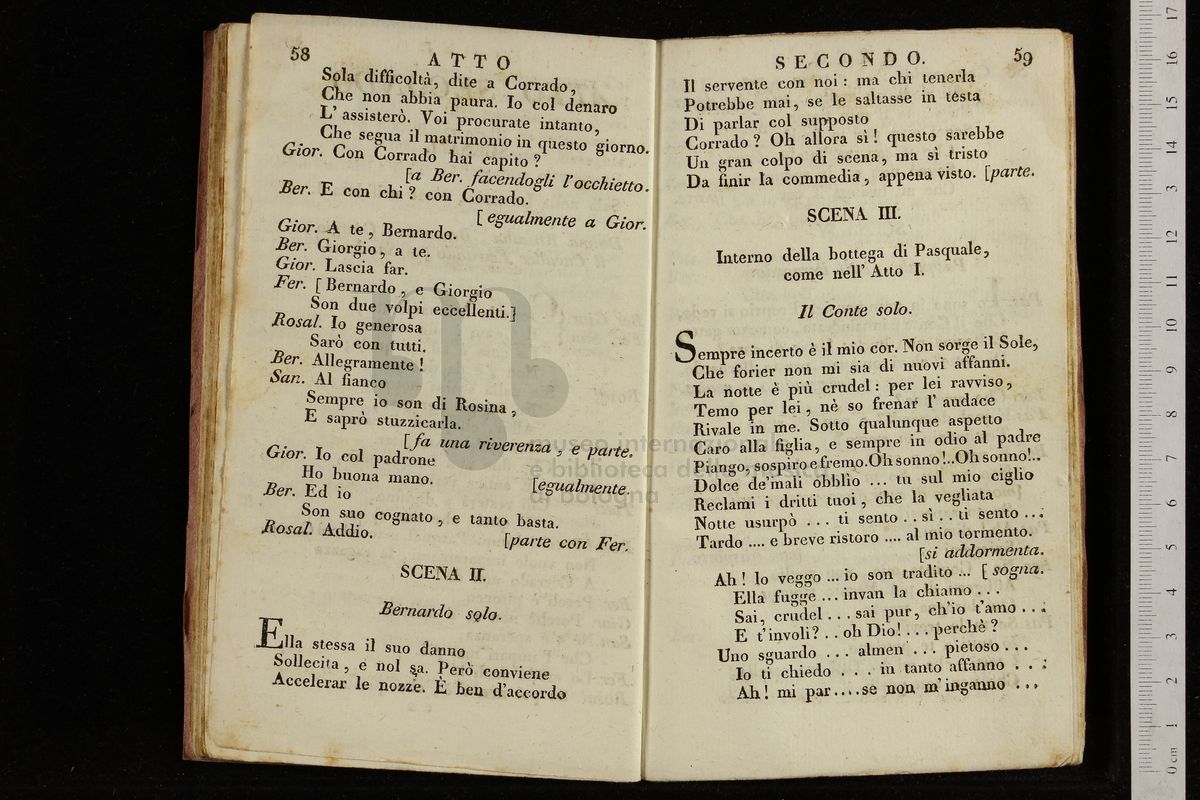 58
ATTO
Sola difficoltà, dite a Corrado,
Che non abbia paura. Io col denaro
L' assisterò. Voi procurate intanto,
Che segua il matrimonio in questo giorno.
Gior. Con Corrado hai capito ?
[a Ber. facendogli l'occhietto.
Ber. E con chi ? con Corrado.
[ egualmente a Gior.
Gior. A te, Bernardo.
Ber. Giorgio, a te.
Gior. Lascia far.
Fer. [ Bernardo, e Giorgio
Son due volpi eccellenti.]
Rosal. Io generosa
Sarò con tutti.
Ber. Allegramente !
San. Al fianco
Sempre io son di Rosina,
E saprò stuzzicarla.
[fa una riverenza, e parte.
Gior. Io col padrone
Ho buona mano.
[egualmente.
Ber. Ed io
Son suo cognato, e tanto basta.
Rosal. Addio.
[parte con Fer.
SCENA II.
Bernardo solo.
Ella stessa il suo danno
Sollecita, e nol sa. Però conviene
Accelerar le nozze. È ben d'accordo
SECONDO.
59
Il servente con noi : ma chi tenerla
Potrebbe mai, se le saltasse in testa
Di parlar col supposto
Corrado ? Oh allora sì ! questo sarebbe
Un gran colpo di scena, ma sì tristo
Da finir la commedia, appena visto. [parte.
SCENA III.
Interno della bottega di Pasquale,
come nell' Atto I.
Il Conte solo.
Sempre incerto è il mio cor. Non sorge il Sole,
Che forier non mi sia di nuovi affanni.
La notte è più crudel : per lei ravviso,
Temo per lei, nè so frenar l' audace
Rivale in me. Sotto qualunque aspetto
Caro alla figlia, e sempre in odio al padre
Piango, sospiro e fremo. Oh sonno !.. Oh sonno!..
Dolce de'mali obblìo ... tu sul mio ciglio
Reclami i dritti tuoi, che la vegliata
Notte usurpò ... ti sento .. sì .. ti sento ...
Tardo .... e breve ristoro .... al mio tormento.
[si addormenta.
Ah ! Io veggo ... io son tradito ... [ sogna.
Ella fugge ... invan la chiamo ...
Sai, crudel ... sai pur, ch'io t'amo ...
E t'involi? .. oh Dio! ... perchè ?
Uno sguardo ... almen ... pietoso ...
Io ti chiedo .... in tanto affanno ...
Ah ! mi par ....se non m'inganno ...
museo internazionale
e biblioteca della musica
di bologna
0 cm 1 2 3 4 5 6 7 8 9 10 11 12 13 14 15 16 17